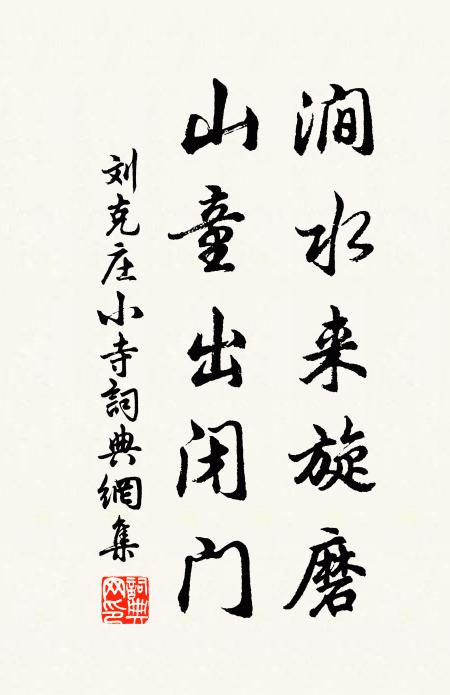 涧水来旋磨
山童出闭门
刘克庄小寺詞典網集
詞典網印